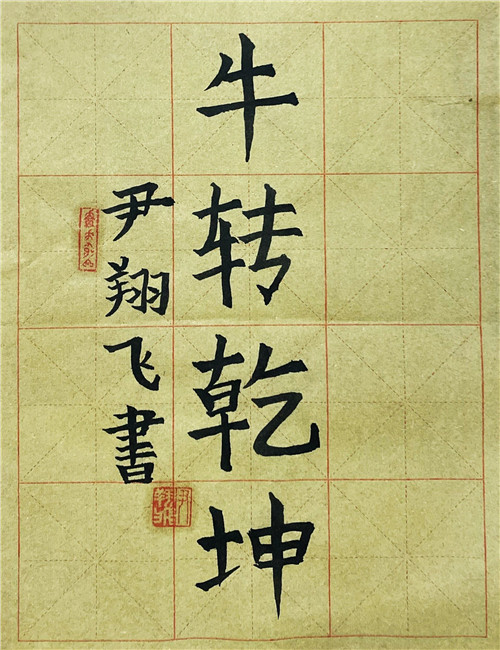 牛转乾坤
尹翔飞書